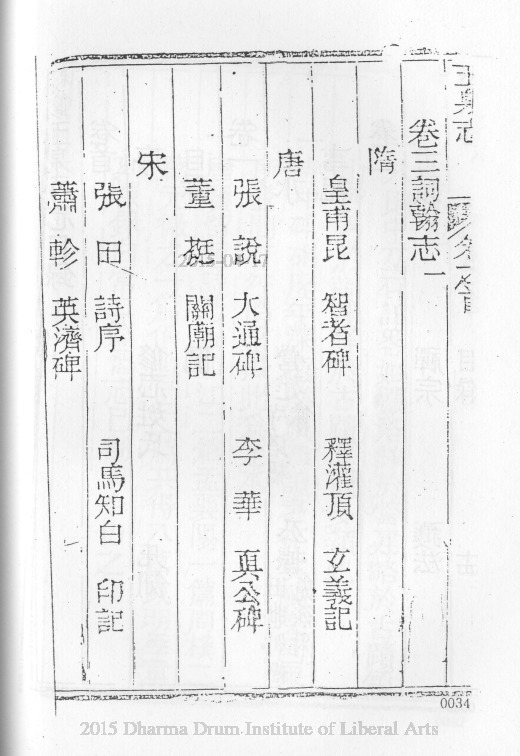 玉泉志
卷三詞翰志一
隋
皇甫昆 智者碑 釋灌頂 玄義記
唐
張說 大通碑 李華 眞公碑
董挺 關廟記
宋
張田 詩序 司馬知白 印記
蕭軫 英濟碑
2015-04-17
0034
2015 Dharma Drum Institute of Liberal Arts